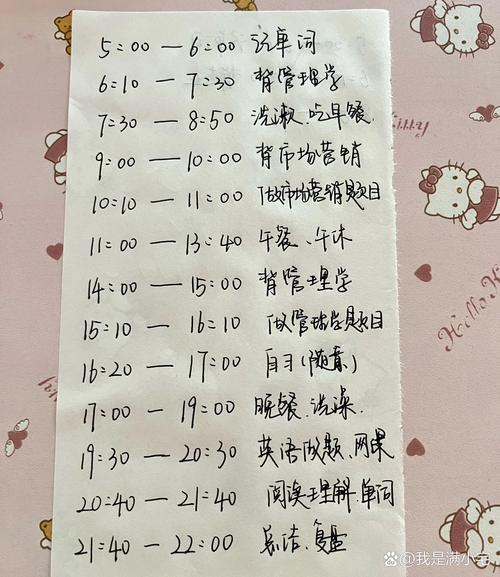 5:00 — 6:00 洗单词
6:10 — 7:30 背管理学
7:30 — 8:50 洗漱、吃早餐
9:00 — 10:00 背市场营销
10:10 — 11:00 做市场营销题目
11:00 — 13:40 午餐、午休
14:00 — 15:00 背管理学
15:10 — 16:10 做管理学题目
16:20 — 17:00 自习(随意)
17:00 — 19:00 晚餐、洗澡.
19:30 — 20:30 英语做题、网课
20:40 — 21:40 阅读理解、单词
21:40 — 22:00 总结、复盘
Hello K
du 百家号/我是满小宅